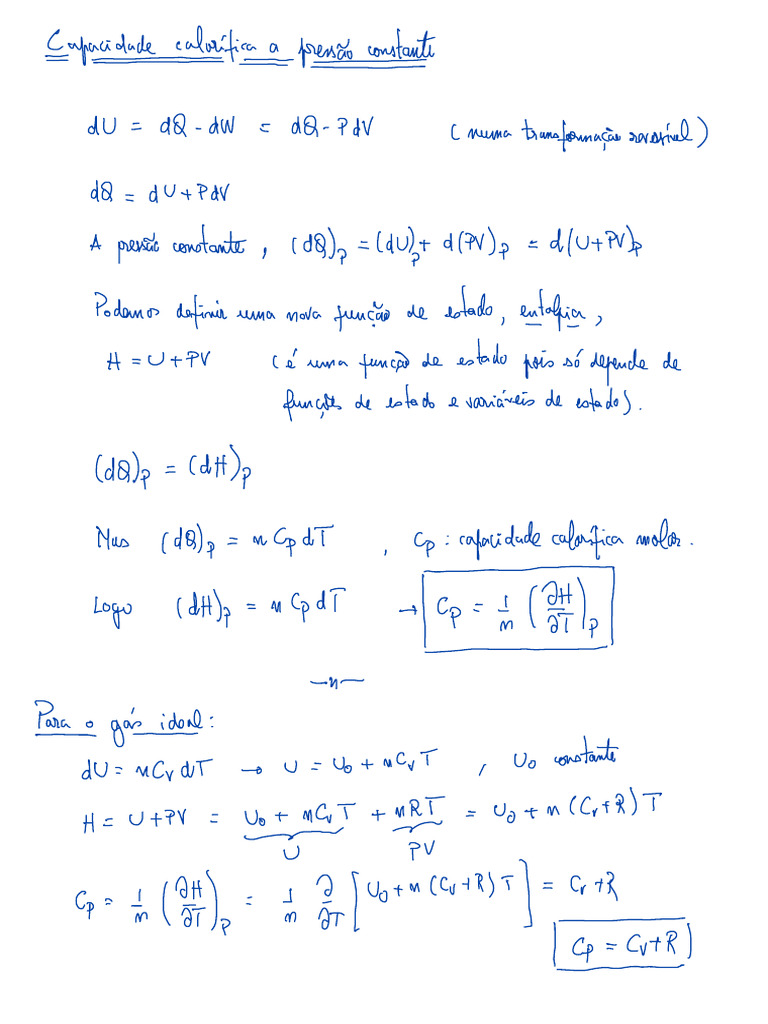 Capacidade calorífica a pressão constante
dU = dQ - dW = dQ - PdV (numa transformação reversível)
dQ = dU + PdV
A pressão constante, (dQ)_P = (dU)_P + d(PV)_P = d(U+PV)_P
Podemos definir uma nova função de estado, entalpia,
H = U + PV (é uma função de estado pois só depende de
funções de estado e variáveis de estado).
(dQ)_P = (dH)_P
Mas (dQ)_P = n C_P dT , C_P : capacidade calorífica molar.
Logo (dH)_P = n C_P dT → C_P = 1/n (∂H/∂T)_P
—n—
Para o gás ideal:
dU = n C_V dT → U = U_0 + n C_V T , U_0 constante
H = U + PV = U_0 + n C_V T + nRT = U_0 + n (C_V + R) T
U PV
C_P = 1/n (∂H/∂T)_P = 1/n ∂/∂T [U_0 + n (C_V + R) T] = C_V + R
C_P = C_V + R